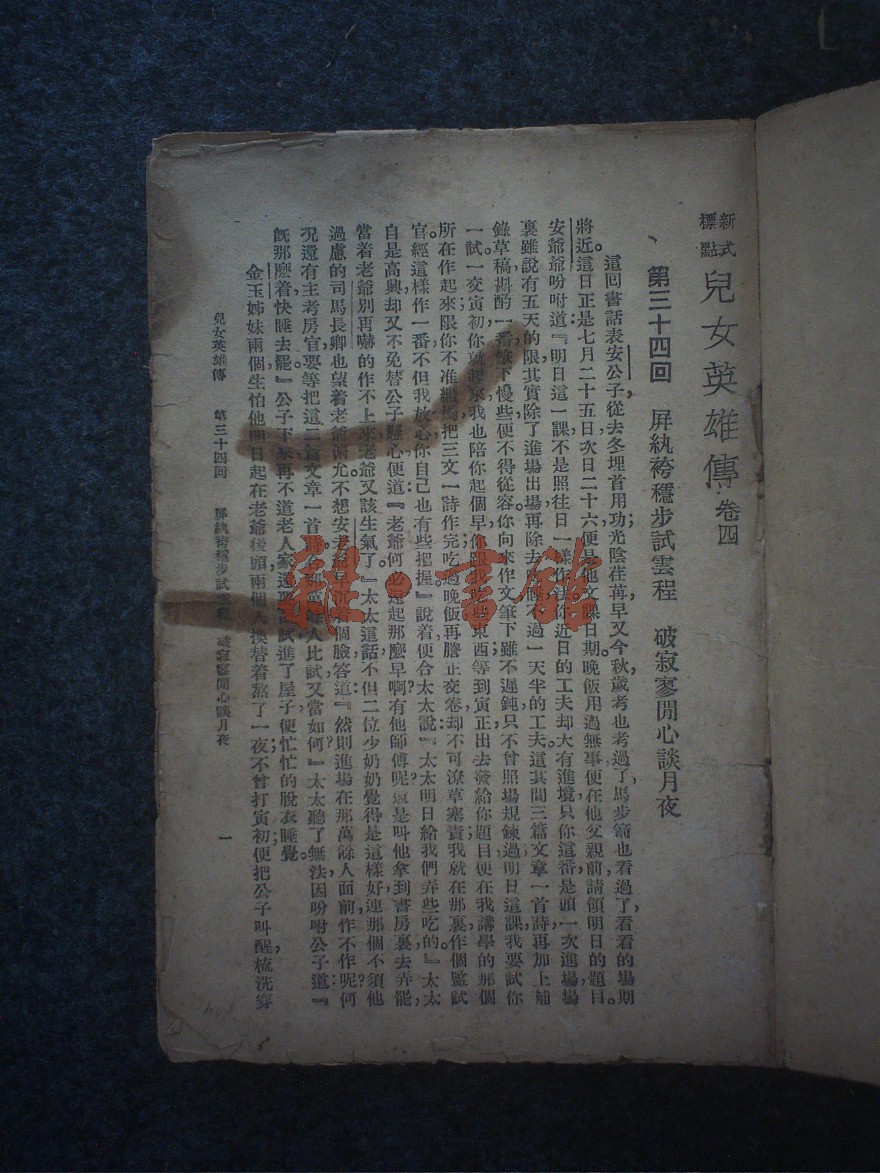 新式
標點
兒女英雄傳 卷四
第三十四回 屏紈袴穩步試雲程 破寂寥閒心談月夜
這回書話表安公子從去冬埋首用功光陰荏苒早又今秋歲考也考過了馬步箭也看過了看看的場期
將近。這日正是七月二十五日次日二十六便是他文課日期。晚飯用過無事便在他父親前請領明日的題目。
安爺爺吩咐道：『明日這一課不是照往日一樣作法你近日的工夫却大有進境只你這番是頭一次進場場
裏雖說有五天的限其實除了進場出場再除去不過一天半的工夫。這其間三篇文章一首詩再加上補
錄草稿斟酌一番下慢些便不得從容。你向來作文筆下雖不遲鈍只不曾照場規鍊過明日這課我要試你
一試一交寅初你就起來我也陪你起個早你跟我吃些東西等到寅正出去發給你題目便在我講學的那個
所在作起來限你不准繼燭把三文一詩作完吃過晚飯再謄正交卷却不可潦草塞責我就在那裏作個監試
官經這樣作一番不但我放心你自己也有些把握。』說着便合太太說：『太太明日給我們弄些吃的。』太太
自是高興却又不免替公子懸心便道：『老爺何必還起那麼早啊？有他師傅呢還是叫他拿到書房裏去弄罷，
當着老爺別再嚇的作不上來老爺又該生氣了。』太太這話不但二位少奶奶覺得是這樣好連那個不須他
過慮的司馬長卿也望着老爺俯允。不想安老爺早沉着個臉答道：『然則進場在那萬餘人面前作不作呢？何
況還有主考房官要等把這三篇文章一首詩合那萬餘人比試又當如何？』太太聽了無法因吩咐公子道：『
旣那麼着快睡去罷。』公子下來再不道老人家還要面試進了屋子便忙忙的脫衣睡覺。
金玉姊妹兩個生怕他明日起在老爺後頭兩個人換替着熬了一夜不曾打寅初便把公子叫醒梳洗穿
兒女英雄傳 第三十四回 屏紈袴穩步試雲程 破寂寥閒心談月夜 一
雜·書館